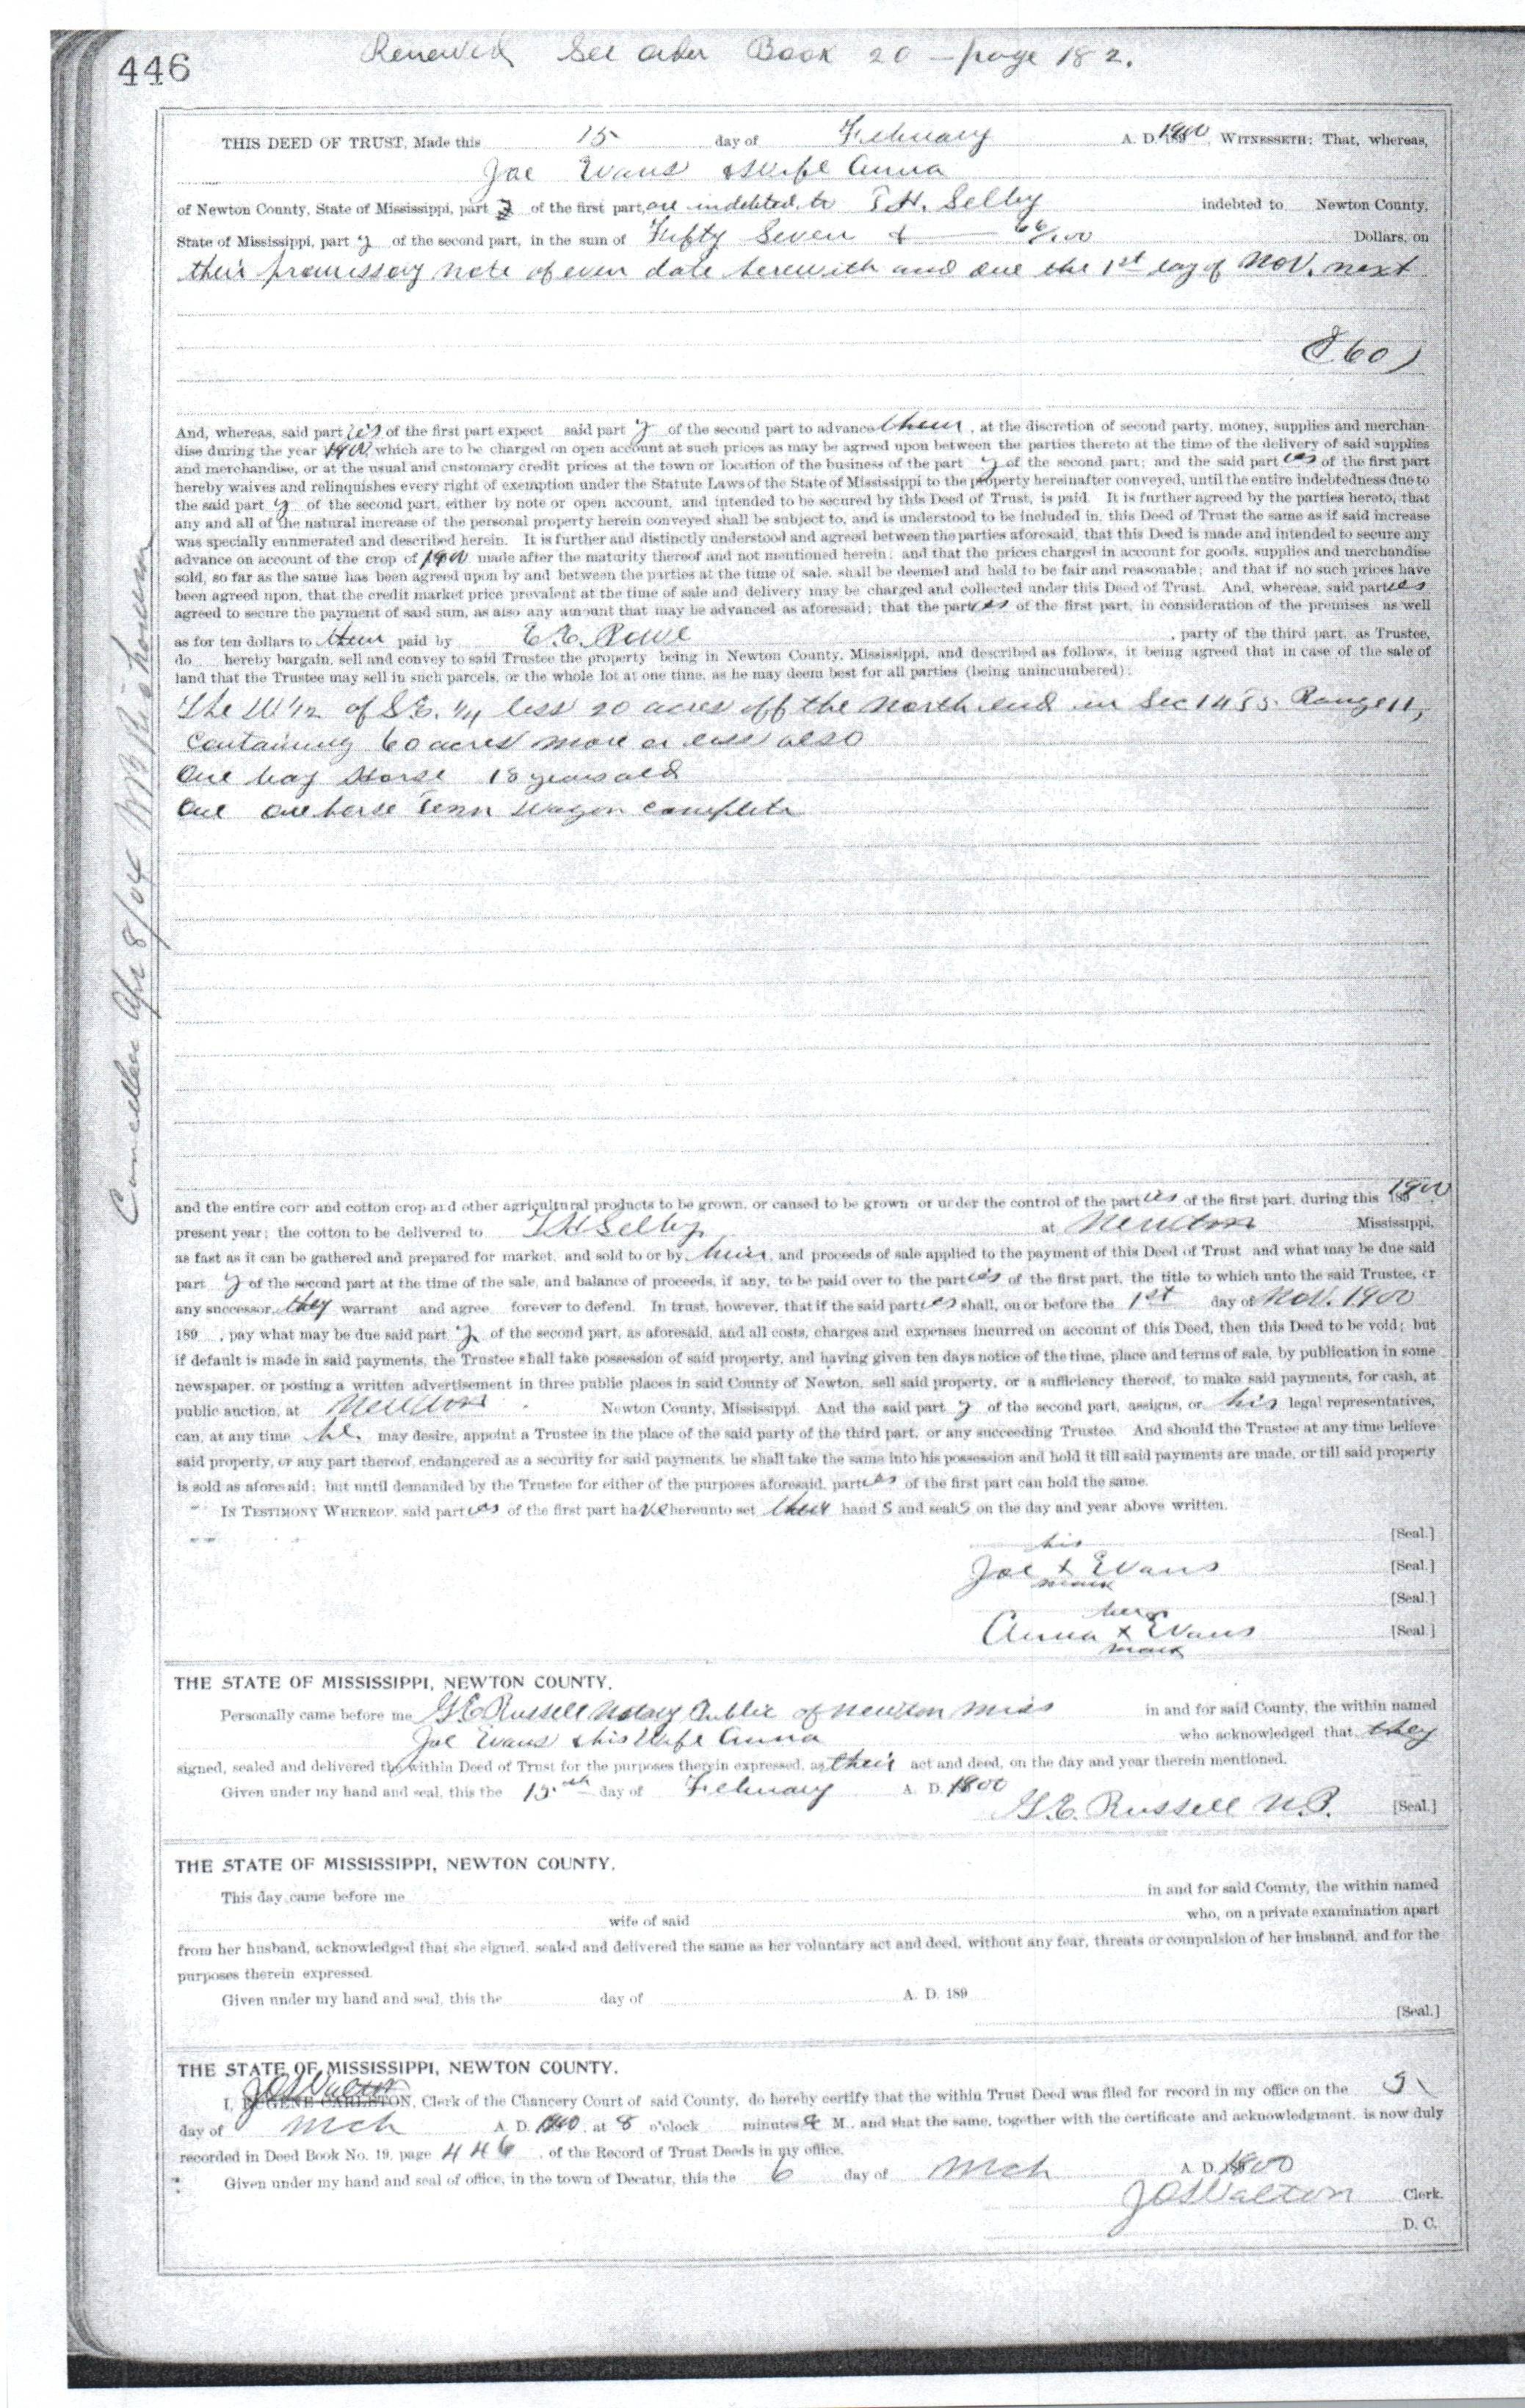 446
Renewed See order Book 20 - page 182.
THIS DEED OF TRUST, Made this 15 day of February A. D. 1900, WITNESSETH: That, whereas,
Joe Evans & Wife Anna
of Newton County, State of Mississippi, part of the first part, are indebted to T. H. Selby indebted to Newton County,
State of Mississippi, part y of the second part, in the sum of Fifty Seven & 66/100 Dollars, on
their promissory note of even date herewith and due the 1st day of Nov. next
And, whereas, said parties of the first part expect said part y of the second part to advance them, at the discretion of second party, money, supplies and merchan-
dise during the year 1900 which are to be charged on open account at such prices as may be agreed upon between the parties thereto at the time of the delivery of said supplies
and merchandise, or at the usual and customary credit prices at the town or location of the business of the part y of the second part; and the said part ies of the first part
hereby waives and relinquishes every right of exemption under the Statute Laws of the State of Mississippi to the property hereinafter conveyed, until the entire indebtedness due to
the said part y of the second part, either by note or open account, and intended to be secured by this Deed of Trust, is paid. It is further agreed by the parties hereto, that
any and all of the natural increase of the personal property herein conveyed shall be subject to, and is understood to be included in, this Deed of Trust the same as if said increase
was specially enumerated and described herein. It is further and distinctly understood and agreed between the parties aforesaid, that this Deed is made and intended to secure any
advance on account of the crop of 1900 made after the maturity thereof and not mentioned herein; and that the prices charged in account for goods, supplies and merchandise
sold, so far as the same has been agreed upon by and between the parties at the time of sale, shall be deemed and held to be fair and reasonable; and that if no such prices have
been agreed upon, that the credit market price prevalent at the time of sale and delivery may be charged and collected under this Deed of Trust. And, whereas, said parties
agreed to secure the payment of said sum, as also any amount that may be advanced as aforesaid; that the parties of the first part, in consideration of the premises as well
as for ten dollars to them paid by E. E. Rowe, party of the third part, as Trustee,
do hereby bargain, sell and convey to said Trustee the property being in Newton County, Mississippi, and described as follows, it being agreed that in case of the sale of
land that the Trustee may sell in such parcels, or the whole lot at one time, as he may deem best for all parties (being unincumbered):
The W 1/2 of S.E. 1/4 less 20 acres off the North end in Sec 14 T 5. Range 11,
containing 60 acres more or less also
One bay Horse 18 years old
One one horse Tenn Wagon complete
and the entire corn and cotton crop and other agricultural products to be grown, or caused to be grown or under the control of the parties of the first part, during this 1900
present year; the cotton to be delivered to T H Selby at Newton Mississippi,
as fast as it can be gathered and prepared for market, and sold to or by him, and proceeds of sale applied to the payment of this Deed of Trust and what may be due said
part y of the second part at the time of the sale, and balance of proceeds, if any, to be paid over to the parties of the first part, the title to which unto the said Trustee, or
any successor, they warrant and agree forever to defend. In trust, however, that if the said parties shall, on or before the 1st day of Nov. 1900
189 , pay what may be due said part y of the second part, as aforesaid, and all costs, charges and expenses incurred on account of this Deed, then this Deed to be void; but
if default is made in said payments, the Trustee shall take possession of said property, and having given ten days notice of the time, place and terms of sale, by publication in some
newspaper, or posting a written advertisement in three public places in said County of Newton, sell said property, or a sufficiency thereof, to make said payments, for cash, at
public auction, at Newton Newton County, Mississippi. And the said part y of the second part, assigns, or his legal representatives,
can, at any time he may desire, appoint a Trustee in the place of the said party of the third part, or any succeeding Trustee. And should the Trustee at any time believe
said property, or any part thereof, endangered as a security for said payments, he shall take the same into his possession and hold it till said payments are made, or till said property
is sold as aforesaid; but until demanded by the Trustee for either of the purposes aforesaid, parties of the first part can hold the same.
IN TESTIMONY WHEREOF, said parties of the first part have hereunto set their hands and seals on the day and year above written.
his [Seal.]
Joe x Evans [Seal.]
mark [Seal.]
her
Anna x Evans [Seal.]
mark
THE STATE OF MISSISSIPPI, NEWTON COUNTY.
Personally came before me G E Russell Notary Public of Newton Miss in and for said County, the within named
Joe Evans & his Wife Anna who acknowledged that they
signed, sealed and delivered the within Deed of Trust for the purposes therein expressed, as their act and deed, on the day and year therein mentioned.
Given under my hand and seal, this the 15th day of February A. D. 1900
G. E. Russell N. P. [Seal.]
THE STATE OF MISSISSIPPI, NEWTON COUNTY.
This day came before me in and for said County, the within named
wife of said who, on a private examination apart
from her husband, acknowledged that she signed, sealed and delivered the same as her voluntary act and deed, without any fear, threats or compulsion of her husband, and for the
purposes therein expressed.
Given under my hand and seal, this the day of A. D. 189
[Seal.]
THE STATE OF MISSISSIPPI, NEWTON COUNTY.
J O Walton
I, EUGENE CARLETON, Clerk of the Chancery Court of said County, do hereby certify that the within Trust Deed was filed for record in my office on the 5
day of Mch A. D. 1900 at 8 o'clock minutes a M., and that the same, together with the certificate and acknowledgment, is now duly
recorded in Deed Book No. 19, page 446, of the Record of Trust Deeds in my office.
Given under my hand and seal of office, in the town of Decatur, this the 6 day of Mch A. D. 1900
J O Walton Clerk.
D. C.
Cancelled Apr 8/04